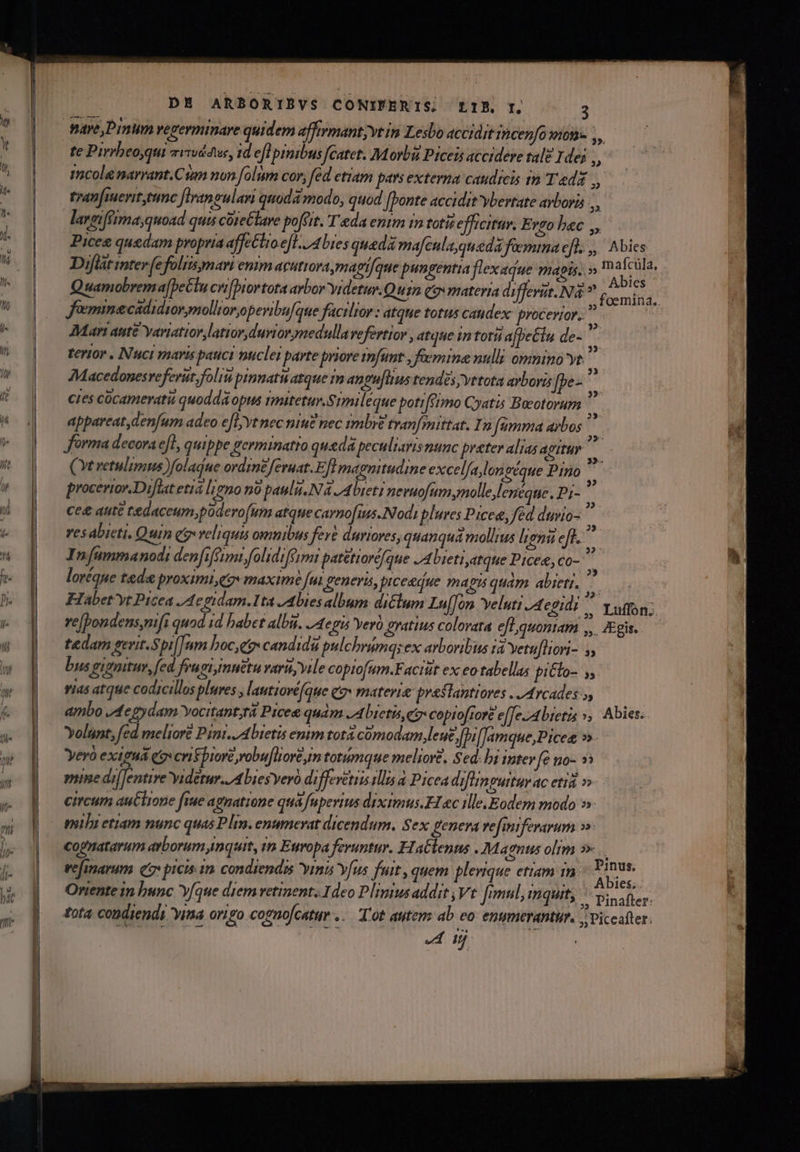 DE ARBORIBVS CONIFERIS. LIB. I. 3
nare, Pinum regerminare quidem affirmant, vt in Lesbo accidit incenso mon- ,,
te Pirrheo, qui πιτυώδης, id est pinibus scatet. Morbũ Piceis accidere talẽ Idei ,,
incolæ narrant. Cùm non solum cor, sed etiam pars externa caudicis in Tædã ,,
transiuerit, tunc strangulari quodã modo, quod sponte accidit vbertate arboris ,,
largissima, quoad quis cõiectare possit. Tæda enim in totũ efficitur. Ergo hæc ,,
Piceæ quædam propria affectio est. Abies quædã mascula, quædã fœmina est. ,, Abies
Distãt inter se foliis, mari enim acutiora, magísque pungentia flexáque magis. ,, mascula.
Quamobrem aspectu crispior tota arbor videtur. Quin & materia differũt. Nã ,, Abies
fœminæ cãdidior, mollior, operibúsque facilior: atque totus caudex procerior. ,, fœmina.
Mari autẽ variatior, latior, durior, medulla refertior, atque in totũ aspectu de- ,,
terior. Nuci maris pauci nuclei parte priore insunt, fœminæ nulli omnino vt ,,
Macedones referũt, foliũ pinnatũ atque in angustius tendẽs, vt tota arboris spe- ,,
cies cõcameratũ quoddã opus imitetur. Simileque potissimo Cyatis Bœotorum ,,
appareat, densum adeo est, vt nec niuẽ nec imbrẽ transmittat. In summa arbos ,,
forma decora est, quippe germinatio quædã peculiaris nunc præter alias agitur ,,
(vt retulimus) soláque ordinẽ seruat. Est magnitudine excelsa, longéque Pino ,,
procerior. Distat etiã ligno nõ paulũ. Nã Abieti neruosum, molle, leuéque. Pi- ,,
ceæ autẽ tædaceum, põderosum atque carnosius. Nodi plures Piceæ, sed durio- ,,
res abieti. Quin & reliquis omnibus ferè duriores, quanquã mollius lignũ est. ,,
In summa nodi densissimi, solidissimi patẽtiorésque Abieti, atque Piceæ, co- ,,
loréque tædæ proximi, & maximè sui generis, piceæque magis quàm abieti. ,,
Habet vt Picea Aegidam. Ita Abies album dictum Lusson veluti Aegidi ,, Lusson.
respondens, nisi quod id habet albũ. Aegis verò gratius colorata est, quoniam ,, Ægis.
tædam gerit. Spissum hoc, & candidũ pulchrũmq; ex arboribus iã vetustiori- ,,
bus gignitur, sed frugi, inuẽtu rarũ, vile copiosum. Faciũt ex eo tabellas picto- ,,
rias atque codicillos plures, lautiorésque & materiæ præstantiores. Arcades ,,
ambo Aegydam vocitant, tã Piceæ quàm Abietis, & copiosiorẽ esse Abietis ,, Abies.
volunt, sed meliorẽ Pini. Abietis enim totã cõmodam, leuẽ, spissamque, Piceæ ,,
verò exiguã & crispiorẽ, robustiorẽ, in totúmque meliorẽ. Sed hi inter se no- ,,
mine dissentire vidẽtur. Abies verò differẽtiis illis à Picea distinguitur ac etiã ,,
circum auctione siue agnatione quã superius diximus. Hæc ille. Eodem modo ,,
mihi etiam nunc quas Plin. enumerat dicendum. Sex genera resiniferarum ,,
cognatarum arborum, inquit, in Europa feruntur. Hactenus. Magnus olim ,,
resinarum & picis in condiendis vinis vsus fuit, quem plerique etiam in Pinus.
Oriente in hunc vsque diem retinent. Ideo Plinius addit, Vt simul, inquit, ,, Abies. Pinaster.
tota condiendi vina origo cognoscatur. Tot autem ab eo enumerantur. ,, Piceaster.
A iij